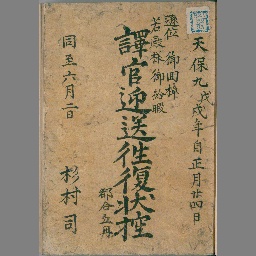 天保九戊戌年自正月廿四日
退位 御回棹
若殿様御紛暇
譯官迎送往復状控
都合五冊
同至六月二日
杉村 司